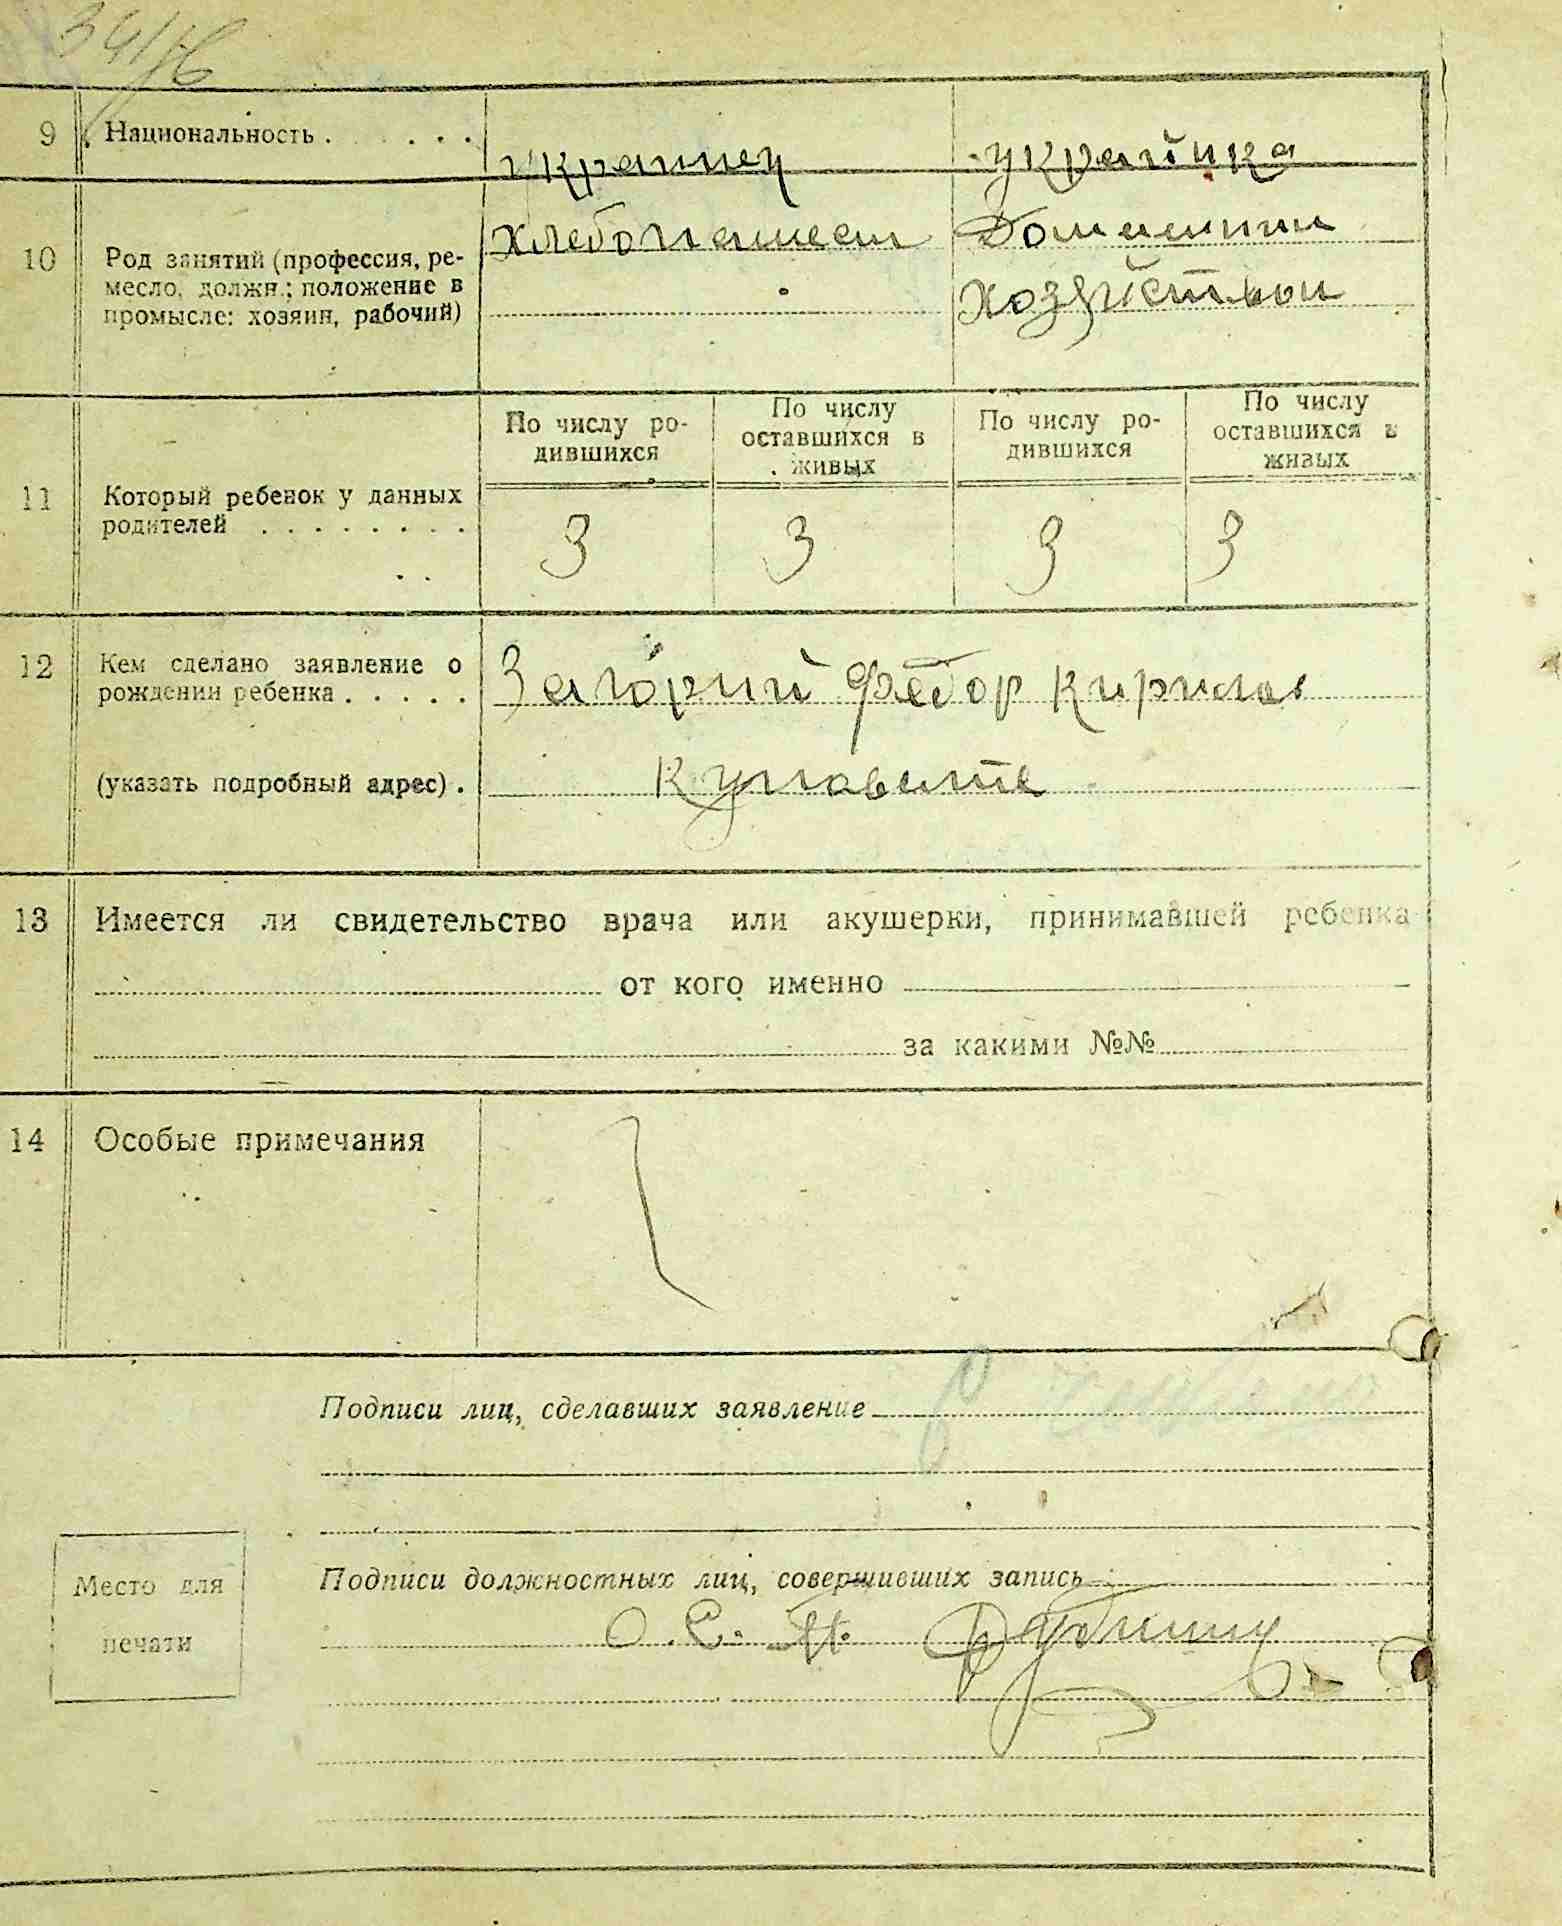 34/16
9 Национальность . . . . . . украинец украинка
10 Род занятий (профессия, ре-
месло, должн.; положение в
промысле: хозяин, рабочий)
хлебопашест Домашним
хозяйством
По числу ро-
дившихся
По числу
оставшихся в
живых
По числу ро-
дившихся
По числу
оставшихся в
живых
11 Который ребенок у данных
родителей . . . . . . . .
3 3 3 3
12 Кем сделано заявление о
рождении ребенка . . . . .
Загорий Фёдор Кирилов
(указать подробный адрес) .
13 Имеется ли свидетельство врача или акушерки, принимавшей ребенка
от кого именно
за какими №№
14 Особые примечания
Подписи лиц, сделавших заявление
Место для
печати
Подписи должностных лиц, совершивших запись